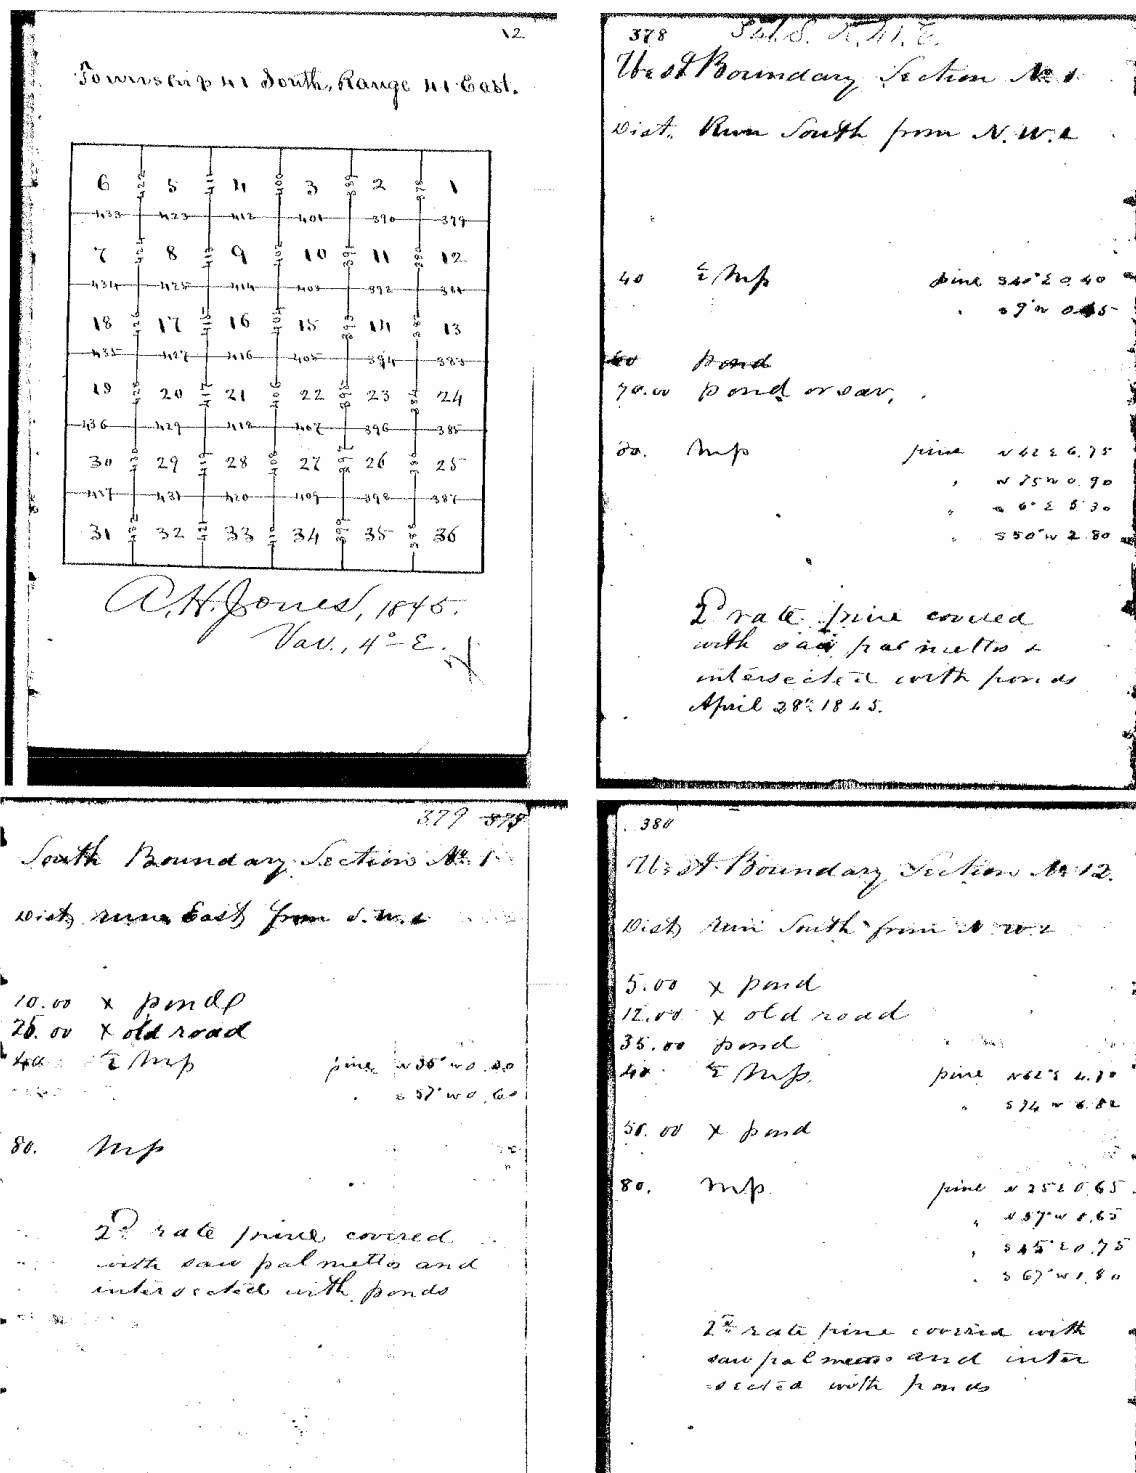 12
Township 41 South, Range 41 East.
6 5 4 3 2 1
422 411 400 389 378
433 423 412 401 390 379
7 8 9 10 11 12
434 425 414 403 392 381
18 17 16 15 14 13
435 427 416 405 394 383
19 20 21 22 23 24
436 429 418 407 396 385
30 29 28 27 26 25
437 431 420 409 398 387
31 32 33 34 35 36
A. H. Jones, 1845.
Var., 4° E.
378 T.41.S. R.41.E.
West Boundary Section No 1
Dist. Run South from N.W.c
40 ½ Mp pine S40°E 0.40
" S9°W
60 pond
70.00 pond or sav,
80. Mp pine N42E 6.75
" N75W 0.90
" 6°E 5.30
" S50°W 2.80
2d rate pine covered
with saw palmetto &
intersected with ponds
April 28th 1845.
379 378
South Boundary Section No 1
Dist, run East from S.W.c
10.00 x pond
25.00 x old road
40 ½ Mp pine N35°W0.
" S57°W0.60
80. Mp
2d rate pine covered
with saw palmetto and
intersected with ponds
380
West Boundary Section No 12.
Dist, run South from N W c
5.00 x pond
12.00 x old road
35.00 pond
40 ½ Mp. pine N62°E 4.70
" S74 W 6.82
50.00 x pond
80. Mp. pine N25E0.65
" N57°W 0.65
" S45°E0.75
" S67°W1.80
2d rate pine covered with
saw palmetto and inter
sected with ponds